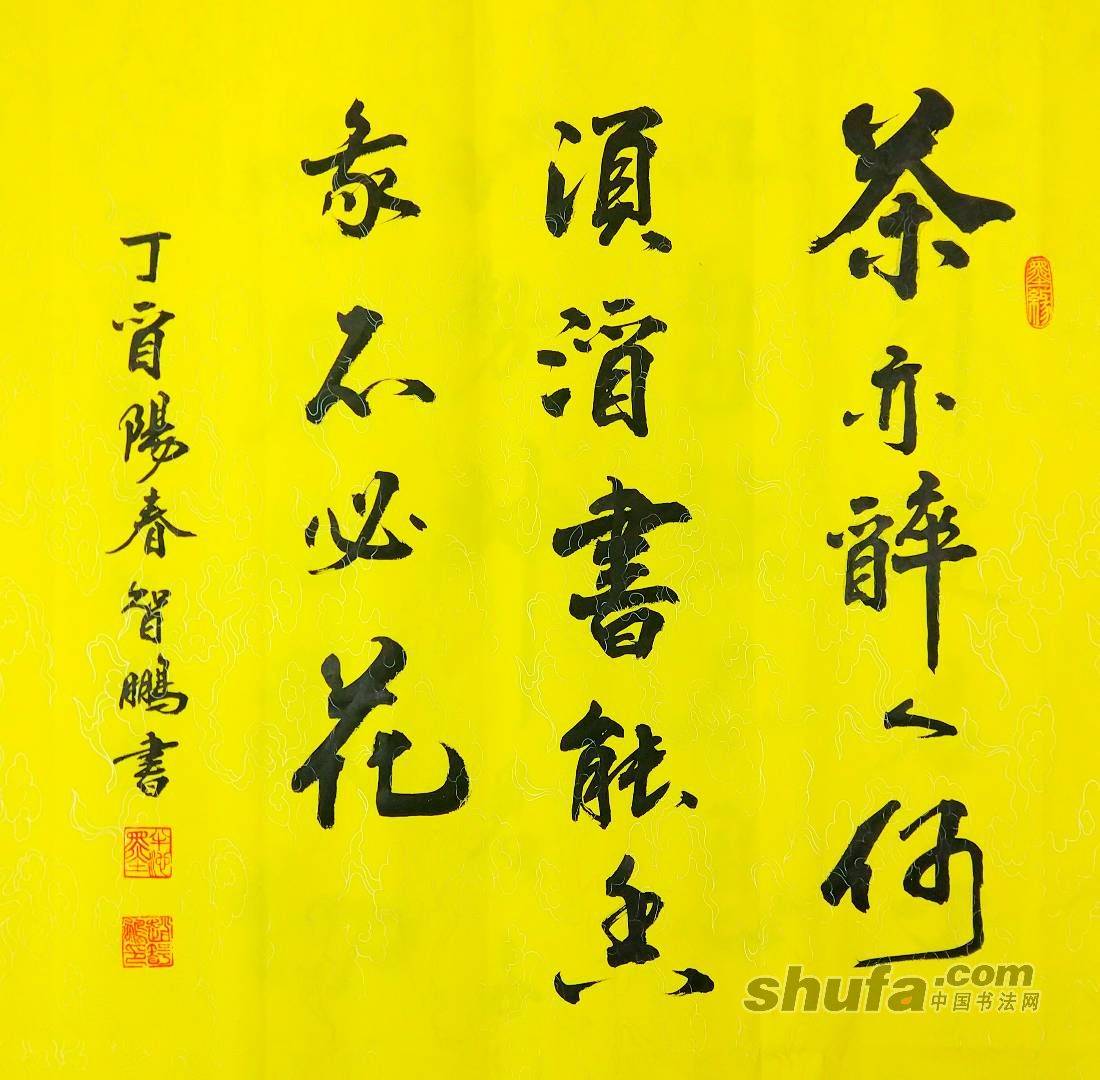 茶亦醉人何
須酒書能香
我不必花
丁酉陽春智鵬書
墨緣
shufa.com
中国书法网